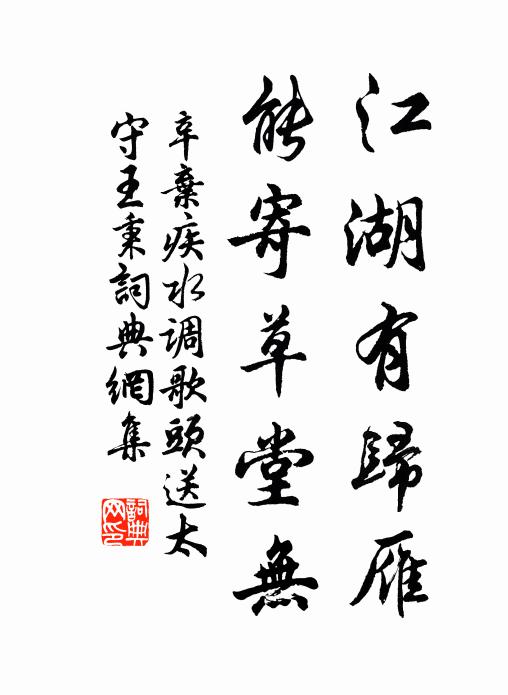 江湖有歸雁
能寄草堂無
辛棄疾水调歌頭送太
守王秉詞典網集
詞典网印